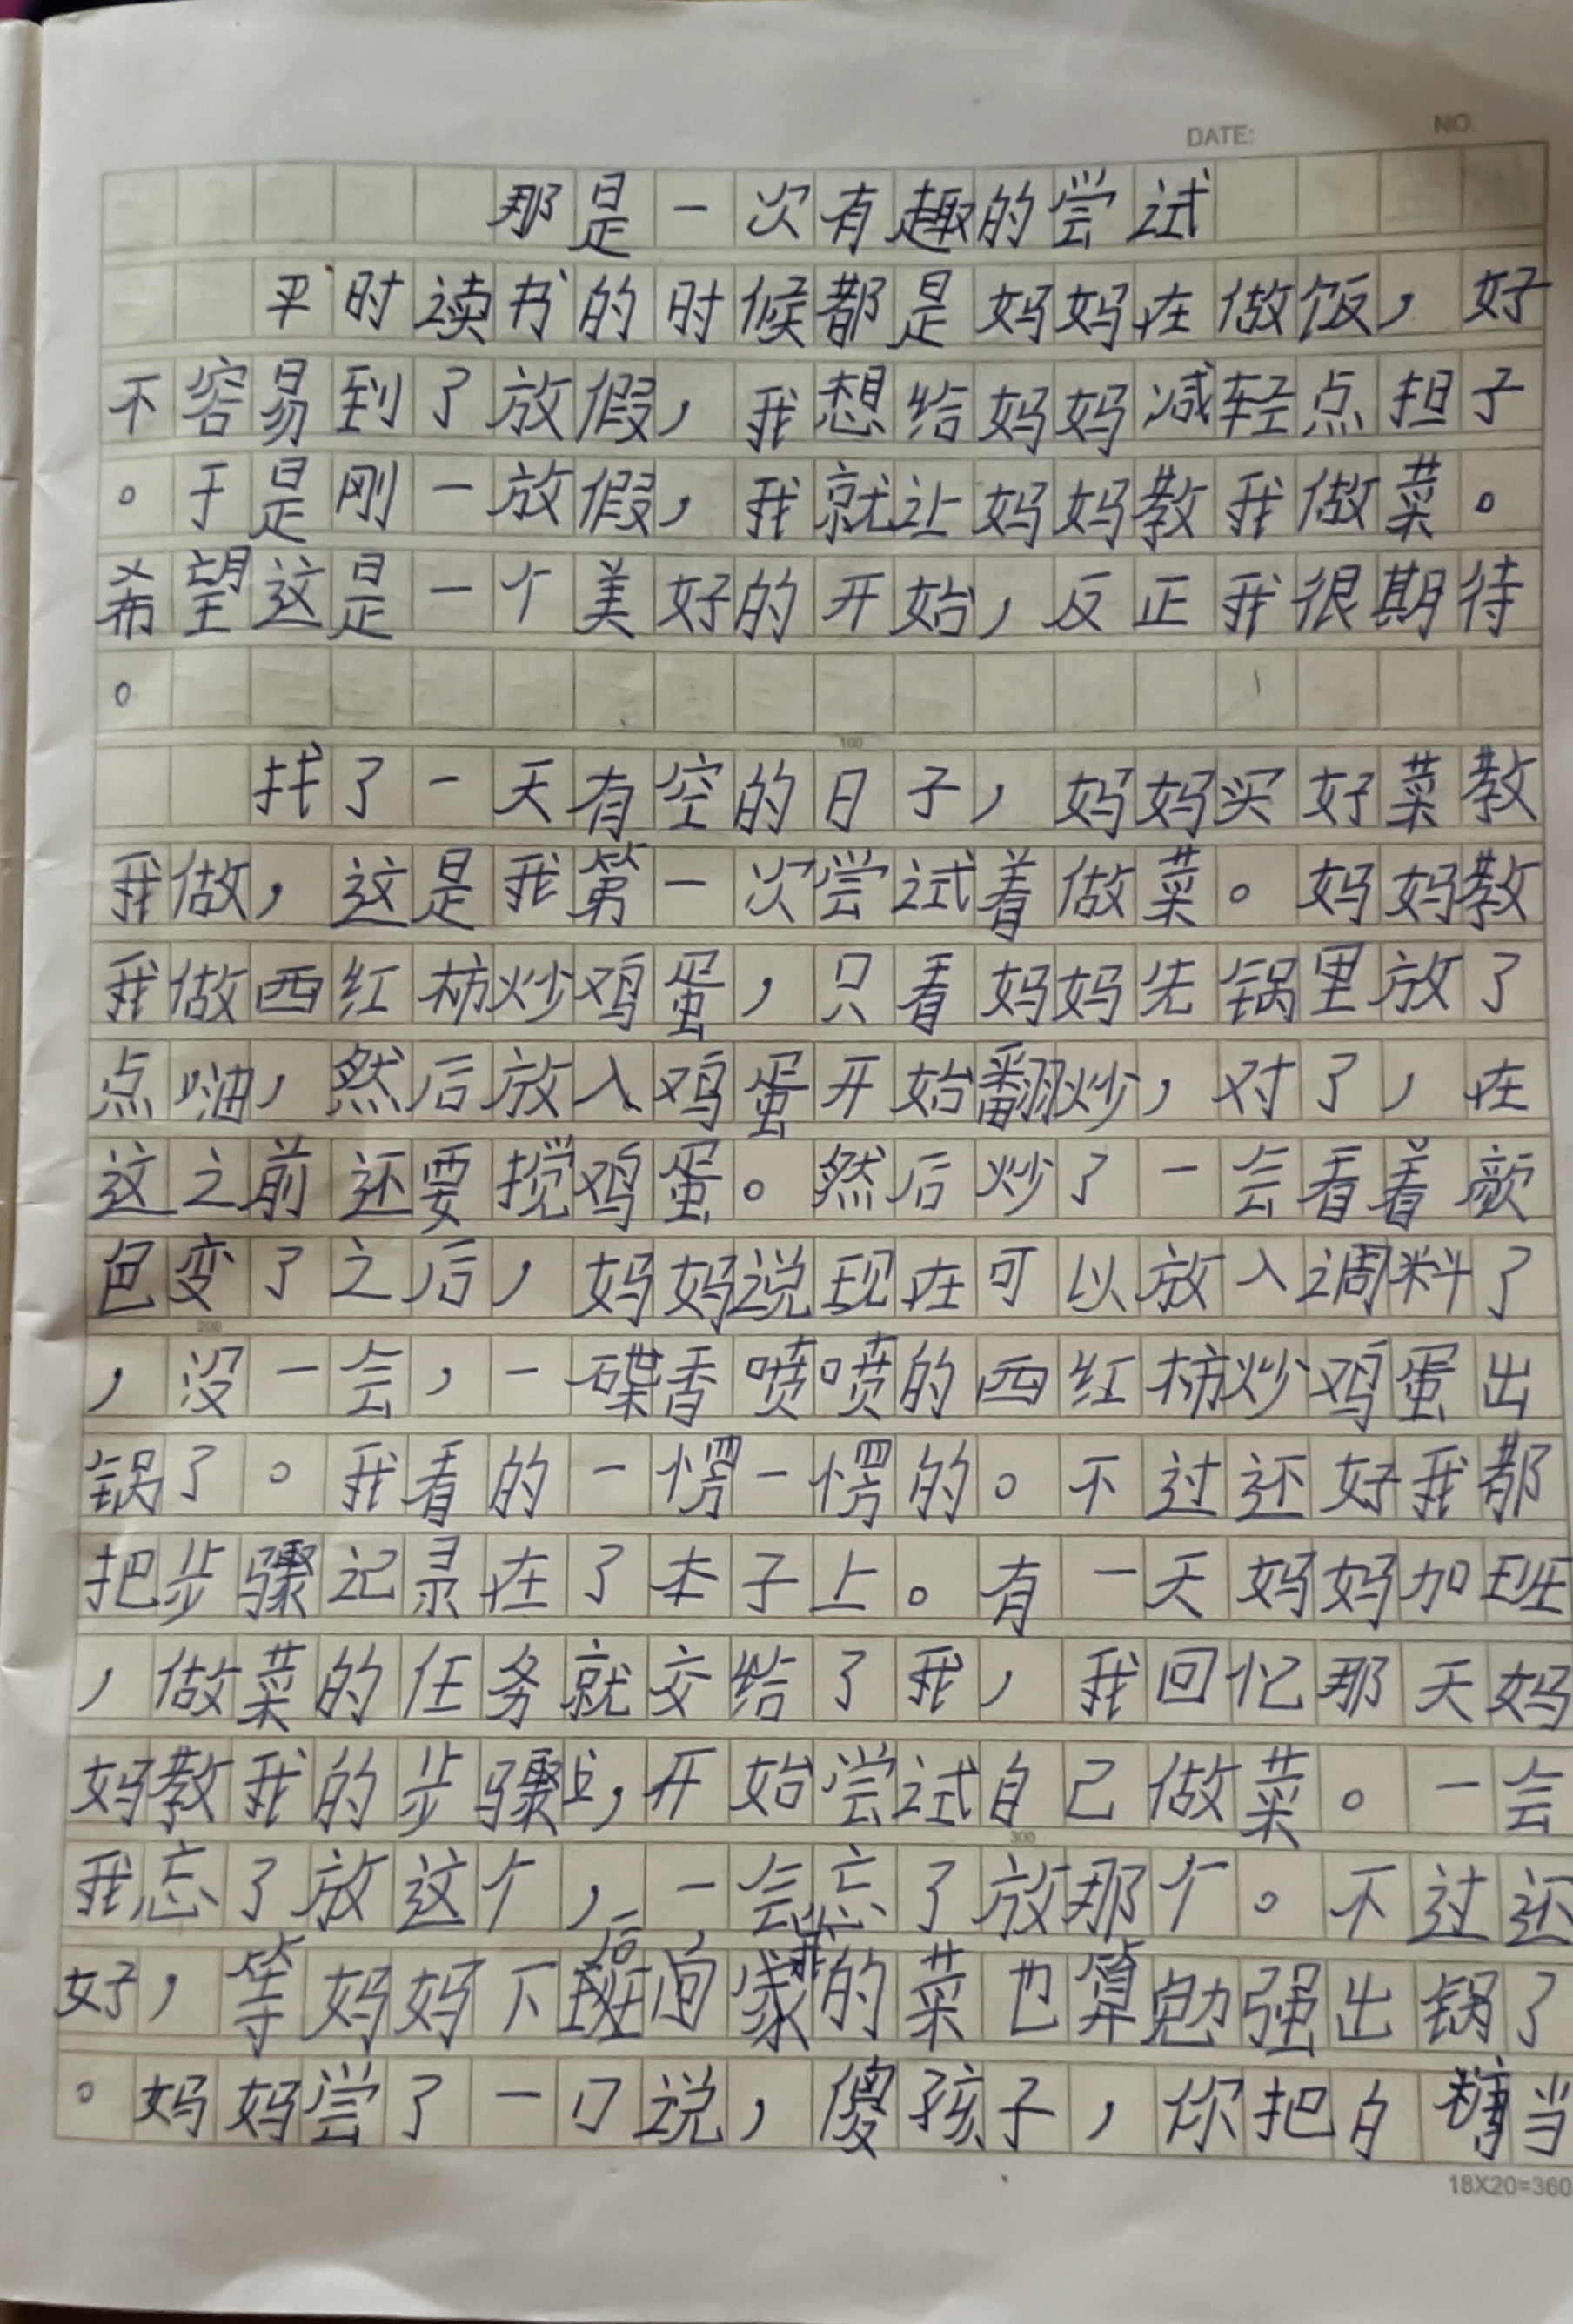 DATE: NO.
那是一次有趣的尝试
平时读书的时候都是妈妈在做饭，好
不容易到了放假，我想给妈妈减轻点担子
。于是刚一放假，我就让妈妈教我做菜。
希望这是一个美好的开始，反正我很期待
。
100
找了一天有空的日子，妈妈买好菜教
我做，这是我第一次尝试着做菜。妈妈教
我做西红柿炒鸡蛋，只看妈妈先锅里放了
点油，然后放入鸡蛋开始翻炒，对了，在
这之前还要搅鸡蛋。然后炒了一会看着颜
色变了之后，妈妈说现在可以放入调料了
200
，没一会，一碟香喷喷的西红柿炒鸡蛋出
锅了。我看的一愣一愣的。不过还好我都
把步骤记录在了本子上。有一天妈妈加班
，做菜的任务就交给了我，我回忆那天妈
妈教我的步骤，开始尝试自己做菜。一会
300
我忘了放这个，一会忘了放那个。不过还
好，等妈妈下班回家后，我的菜也算勉强出锅了
。妈妈尝了一口说，傻孩子，你把白糖当
18X20=360